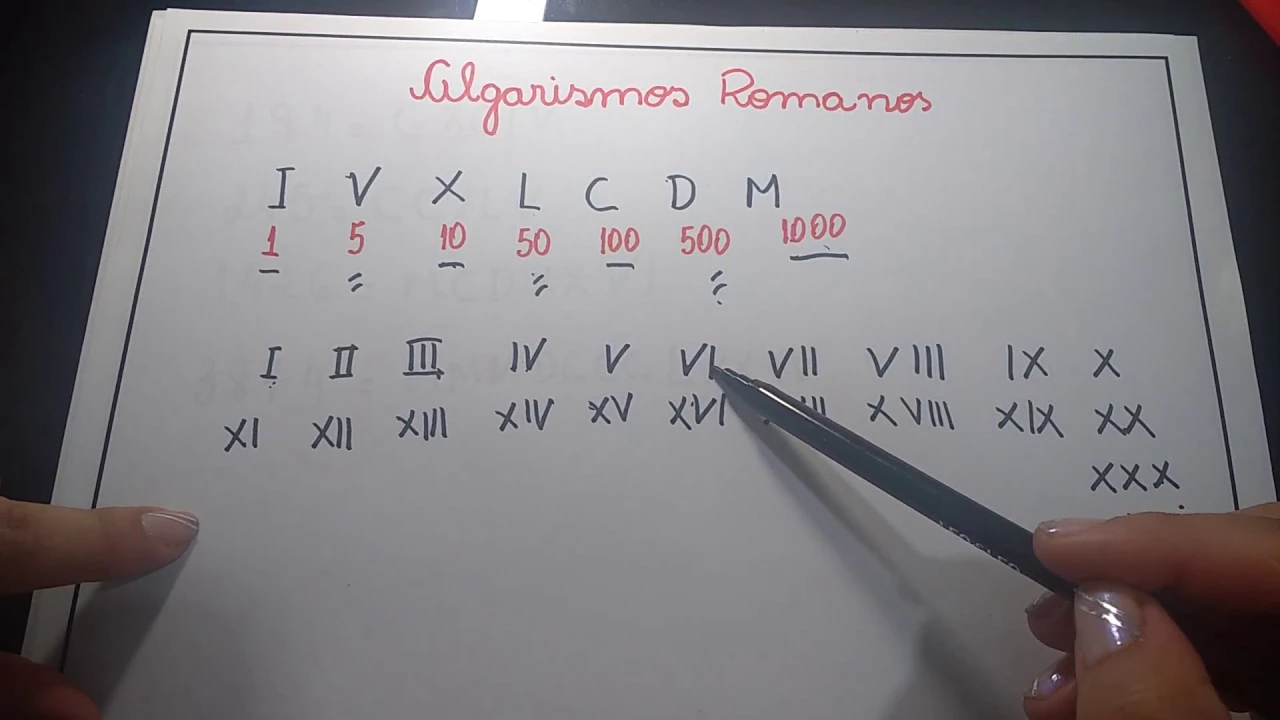 Algarismos Romanos
I V X L C D M
1 5 10 50 100 500 1000
I II III IV V VI VII VIII IX X
XI XII XIII XIV XV XVI XVIII XIX XX
XXX